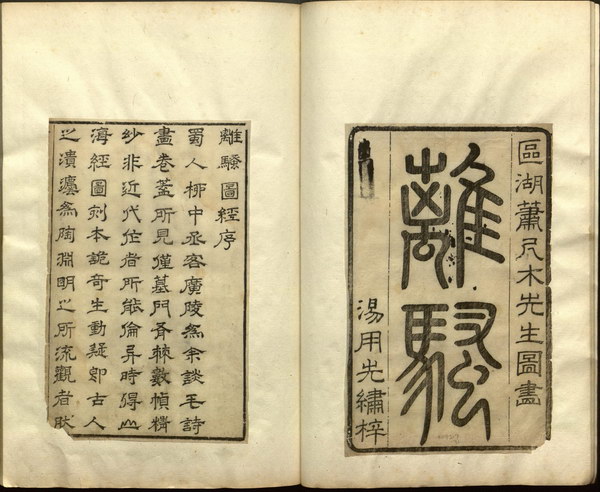 區湖蕭尺木先生圖畫
離騷
湯用先繡梓
離騷圖經序
蜀人柳中丞客廣陵為余談毛詩
畫卷蓋所見僅墓門斧棘數幀精
紗非近代作者所能倫异時得山
海經圖刻本詭奇生動疑卽古人
之為陶淵明之所流觀者